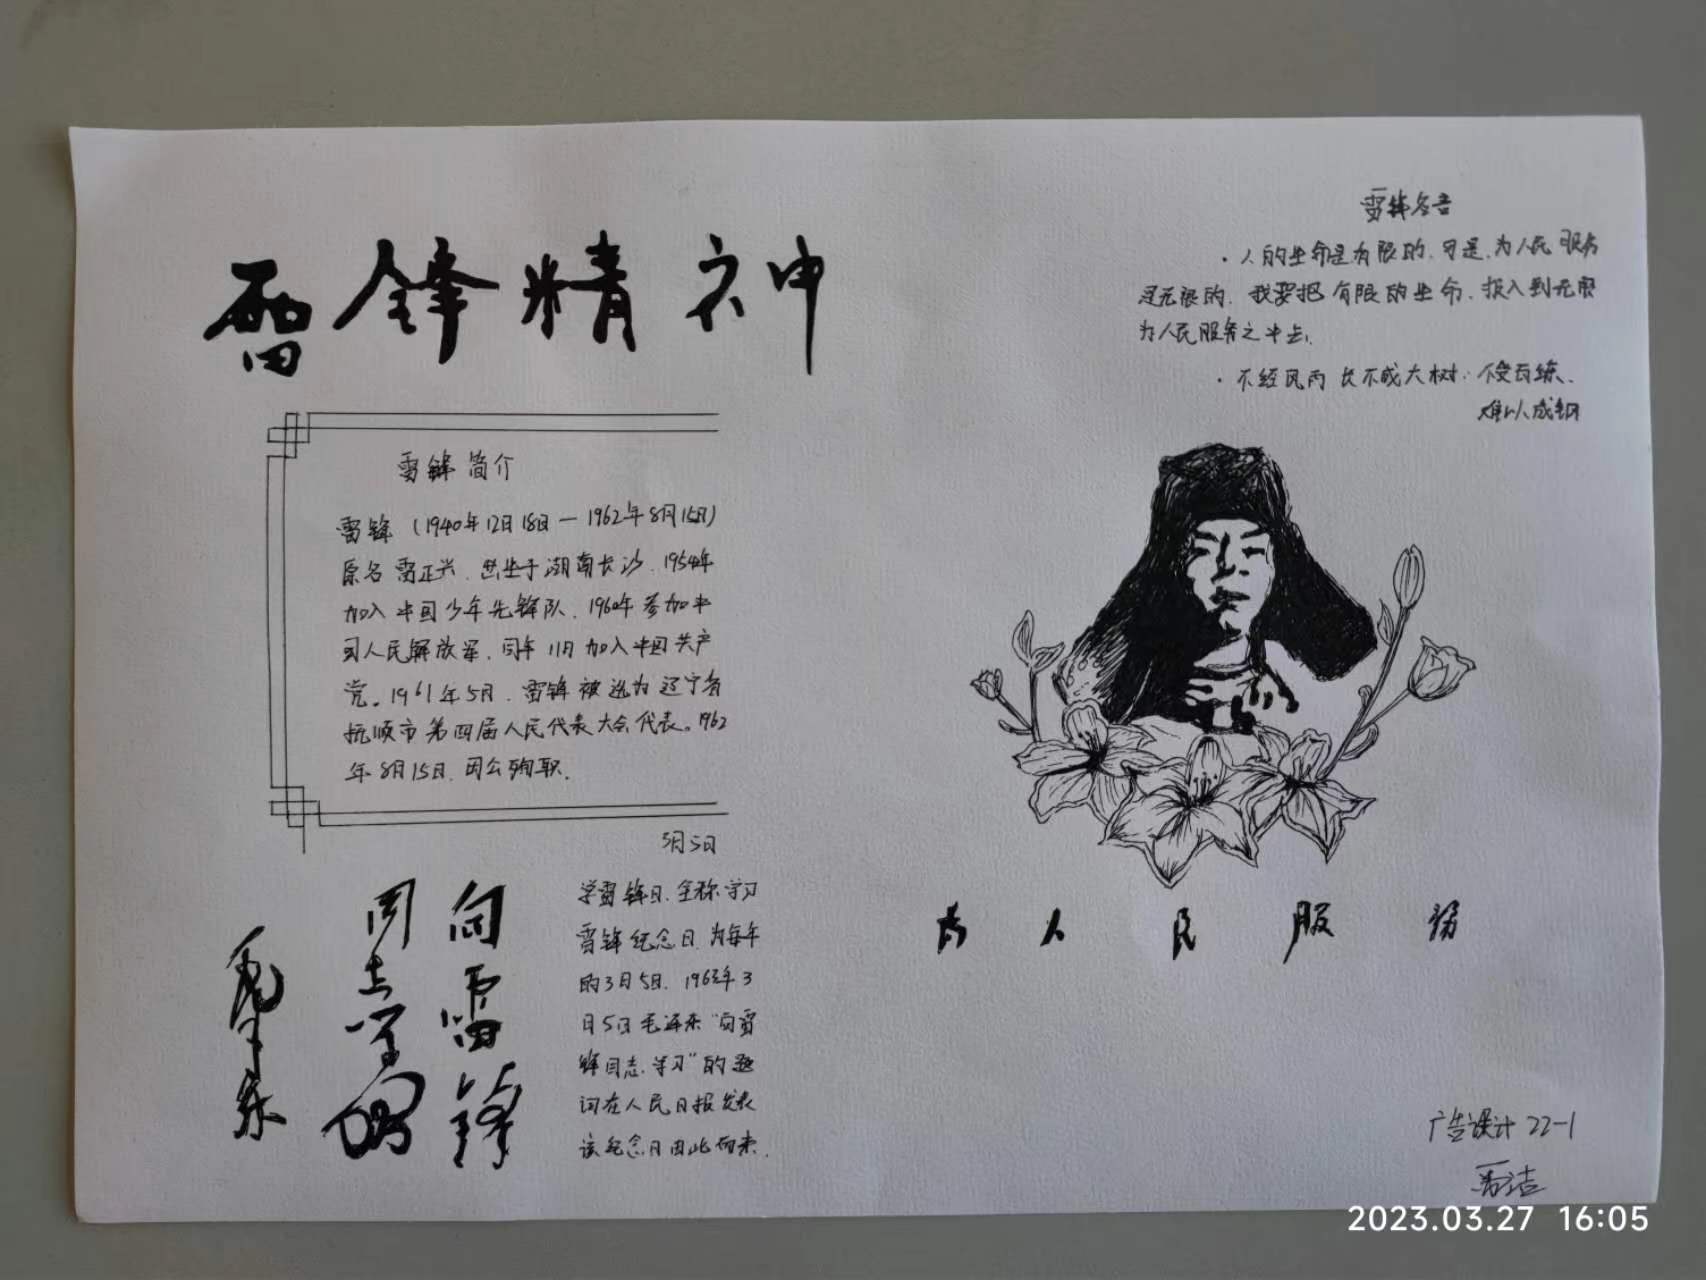 雷锋精神
雷锋简介
雷锋（1940年12月18日—1962年8月15日）
原名雷正兴．出生于湖南长沙．1954年
加入中国少年先锋队．1960年参加中
国人民解放军．同年11月加入中国共产
党。1961年5月．雷锋被选为辽宁省
抚顺市第四届人民代表大会代表。1962
年8月15日．因公殉职．
3月5日
学雷锋日．全称学习
雷锋纪念日．为每年
的3月5日．1963年3
月5日毛泽东“向雷
锋同志学习”的题
词在人民日报发表
该纪念日因此而来．
向雷锋
同志学习
毛泽东
雷锋名言
·人的生命是有限的．可是．为人民服务
是无限的．我要把有限的生命．投入到无限
为人民服务之中去．
·不经风雨 长不成大树．不受百练．
难以成钢
为人民服务
广告设计 22-1
2023.03.27 16:05